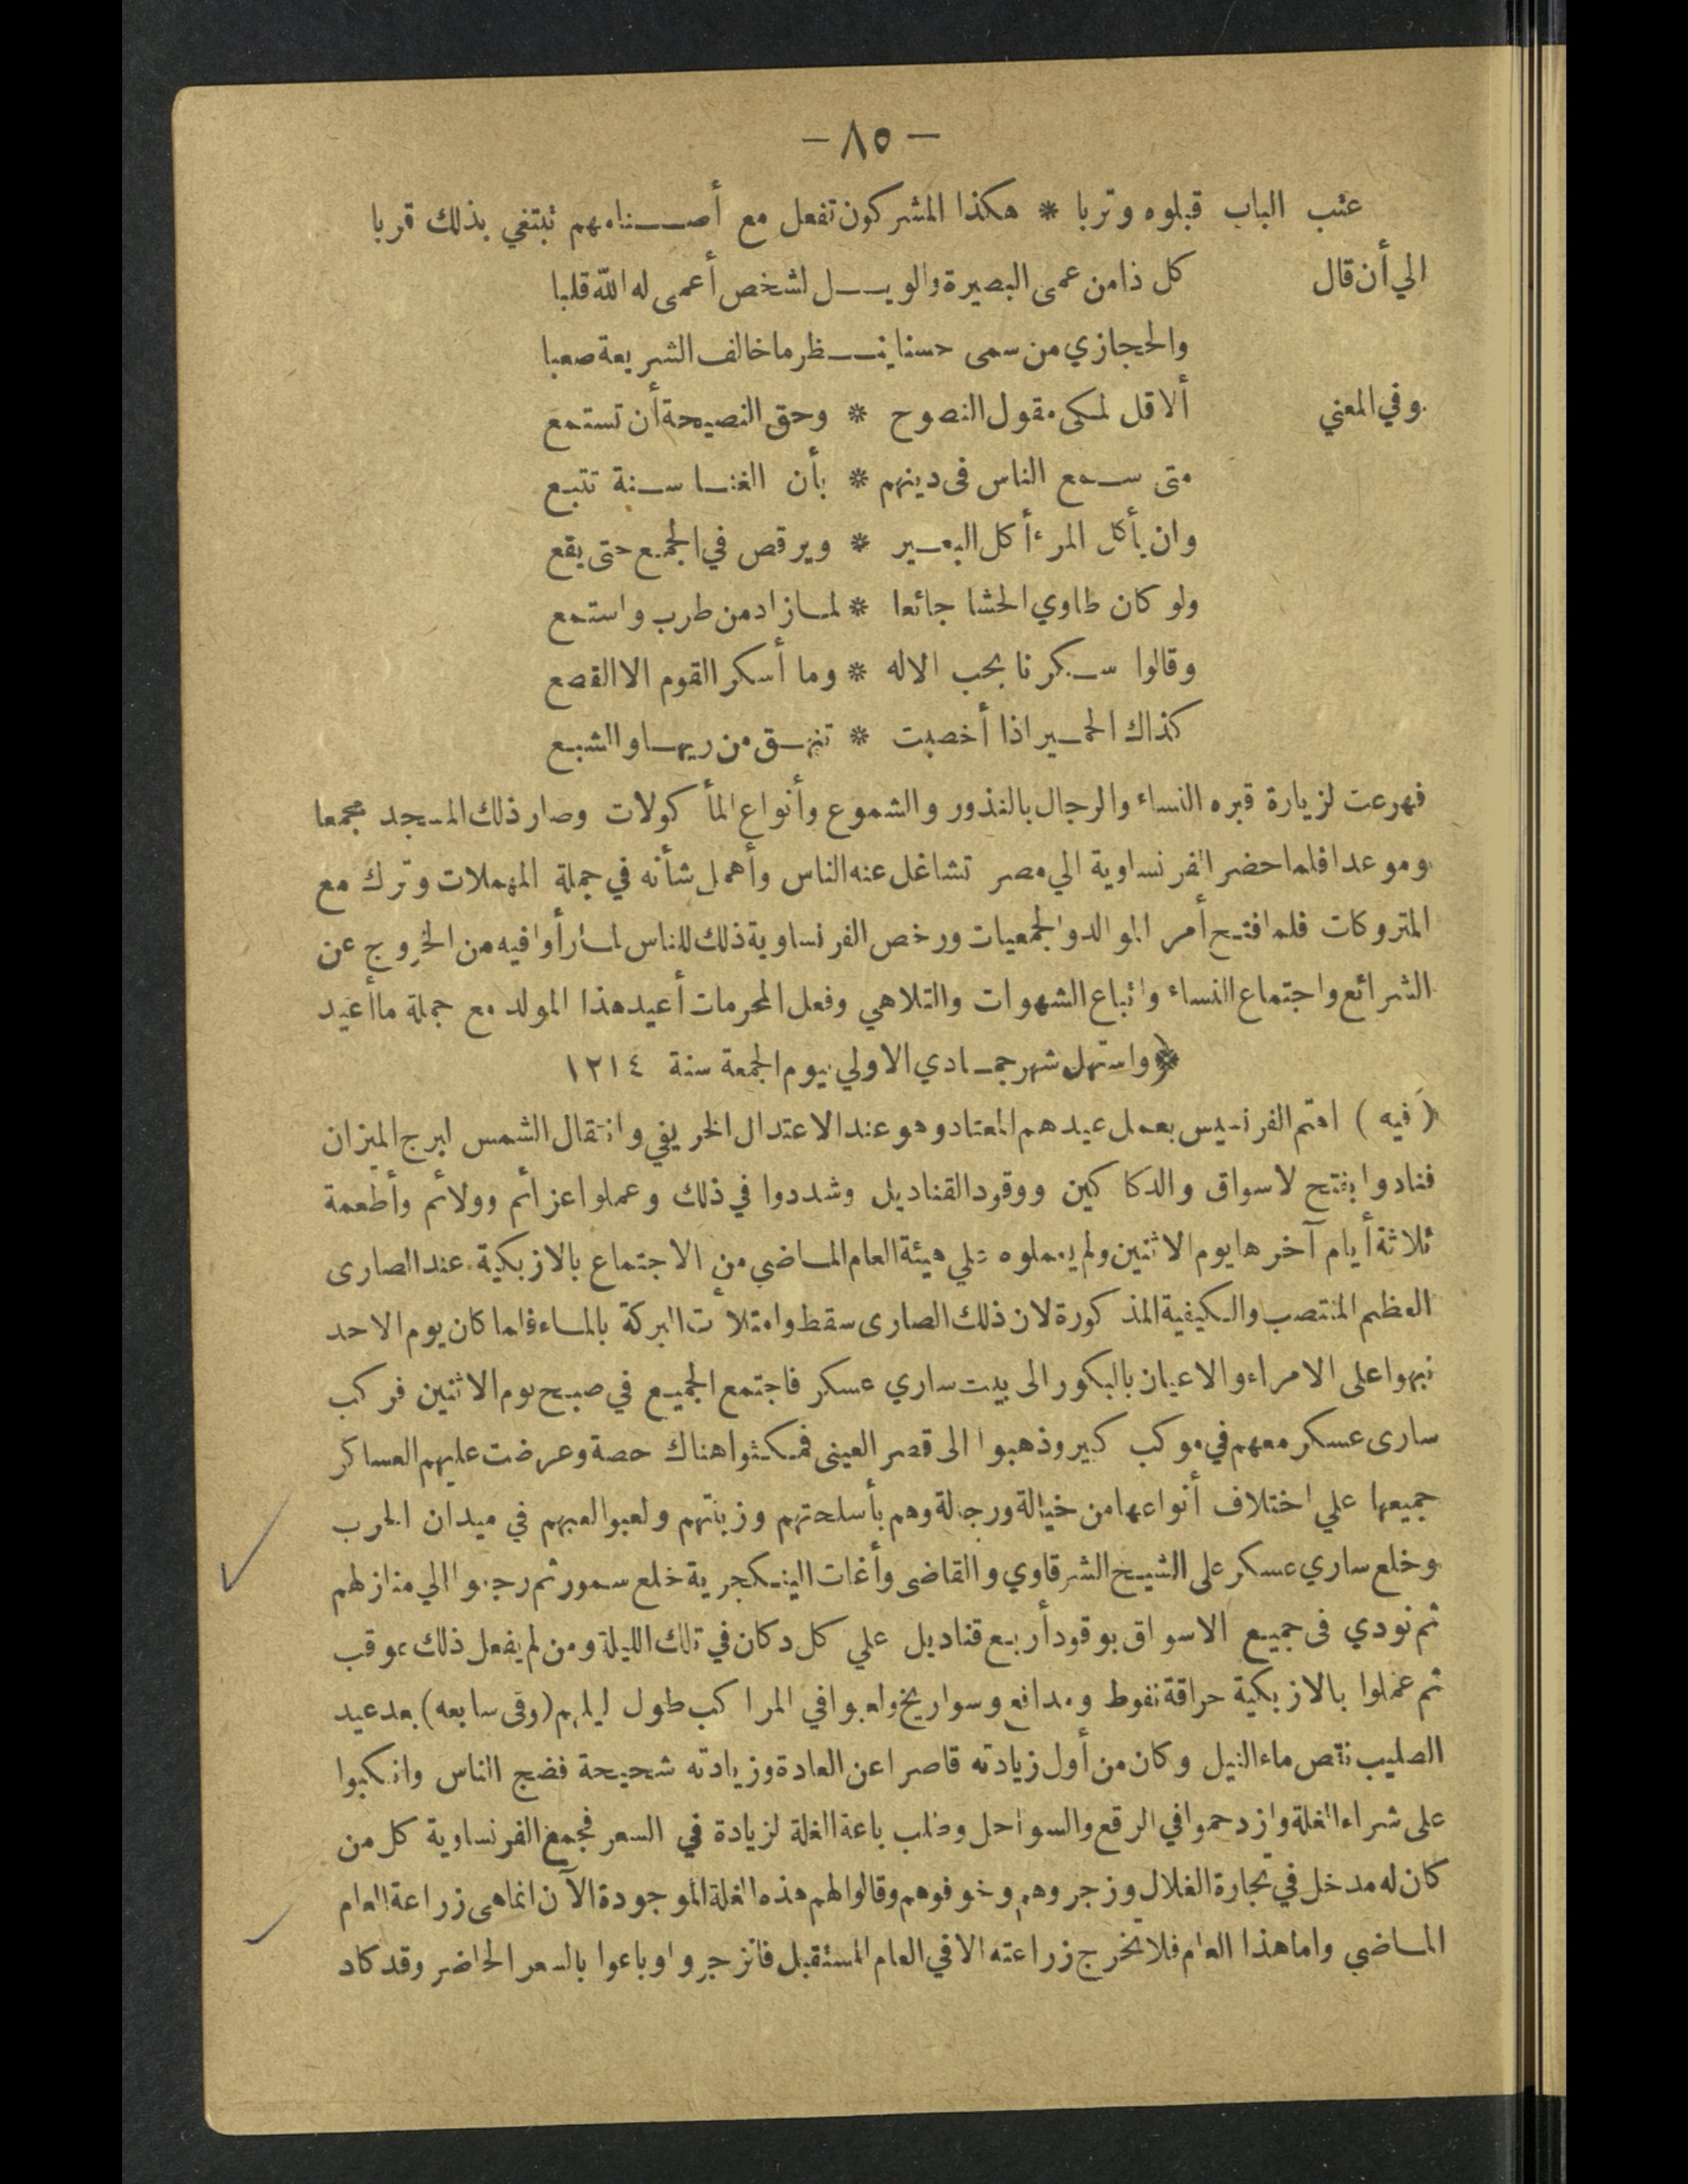 — ٨٥ —
عتب الباب قبلوه وتربا * هكذا المشركون تفعل مع أصنامهم تبتغي بذلك قربا
الي أن قال كل ذا من عمى البصيرة والويل لشخص أعمى له الله قلبا
والحجازي من سمى حسنا ينظر ما خالف الشريعة صعبا
وفي المعني ألا قل لمكى مقول النصوح * وحق النصيحة أن تستمع
متى سمع الناس فى دينهم * بأن الغنا سنة تتبع
وان يأكل المرء أكل البعير * ويرقص في الجمع حتى يقع
ولو كان طاوي الحشا جائعا * لما زاد من طرب واستمع
وقالوا سكرنا بحب الاله * وما أسكر القوم الا القصع
كذاك الحمير اذا أخصبت * تنهق من ريها والشبع
فهرعت لزيارة قبره النساء والرجال بالنذور والشموع وأنواع المأكولات وصار ذلك المسجد مجمعا
وموعدا فلما حضر الفرنساوية الي مصر تشاغل عنه الناس وأهمل شأنه في جملة المهملات وترك مع
المتروكات فلما فتح أمر الموالد والجمعيات ورخص الفرنساوية ذلك للناس لما رأوا فيه من الخروج عن
الشرائع واجتماع النساء واتباع الشهوات والتلاهي وفعل المحرمات أعيد هذا المولد مع جملة ما أعيد
﴿ واستهل شهر جمادي الاولي بيوم الجمعة سنة ١٢١٤
(فيه) اهتم الفرنسيس بعمل عيدهم المعتاد وهو عند الاعتدال الخريفي وانتقال الشمس لبرج الميزان
فنادوا بفتح لاسواق والدكاكين ووقود القناديل وشددوا في ذلك وعملوا عزائم وولائم وأطعمة
ثلاثة أيام آخرها يوم الاثنين ولم يعملوه علي هيئة العام الماضي من الاجتماع بالازبكية عند الصارى
العظيم المنتصب والكيفية المذكورة لان ذلك الصارى سقط وامتلأت البركة بالماء فلما كان يوم الاحد
نبهوا على الامراء والاعيان بالبكور الى بيت ساري عسكر فاجتمع الجميع في صبح يوم الاثنين فركب
سارى عسكر معهم في موكب كبير وذهبوا الى قصر العينى فمكثوا هناك حصة وعرضت عليهم العساكر
جميعها علي اختلاف أنواعها من خيالة ورجالة وهم بأسلحتهم وزينتهم ولعبوا لعبهم في ميدان الحرب
وخلع ساري عسكر على الشيخ الشرقاوي والقاضى وأغات الينكجرية خلع سمور ثم رجعوا الي منازلهم
ثم نودي فى جميع الاسواق بوقود أربع قناديل علي كل دكان في تلك الليلة ومن لم يفعل ذلك عوقب
ثم عملوا بالازبكية حراقة نفوط ومدافع وسواريخ ولعبوا في المراكب طول ليلهم (وفى سابعه) بعد عيد
الصليب نقص ماء النيل وكان من أول زيادته قاصرا عن العادة وزيادته شحيحة فضج الناس وانكبوا
على شراء الغلة وازدحموا في الرقع والسواحل وطلب باعة الغلة لزيادة في السعر فجمع الفرنساوية كل من
كان له مدخل في تجارة الغلال وزجروهم وخوفوهم وقالوا لهم هذه الغلة الموجودة الآن انما هى زراعة العام
الماضي واما هذا العام فلا تخرج زراعته الا في العام المستقبل فانزجروا وباعوا بالسعر الحاضر وقد كاد